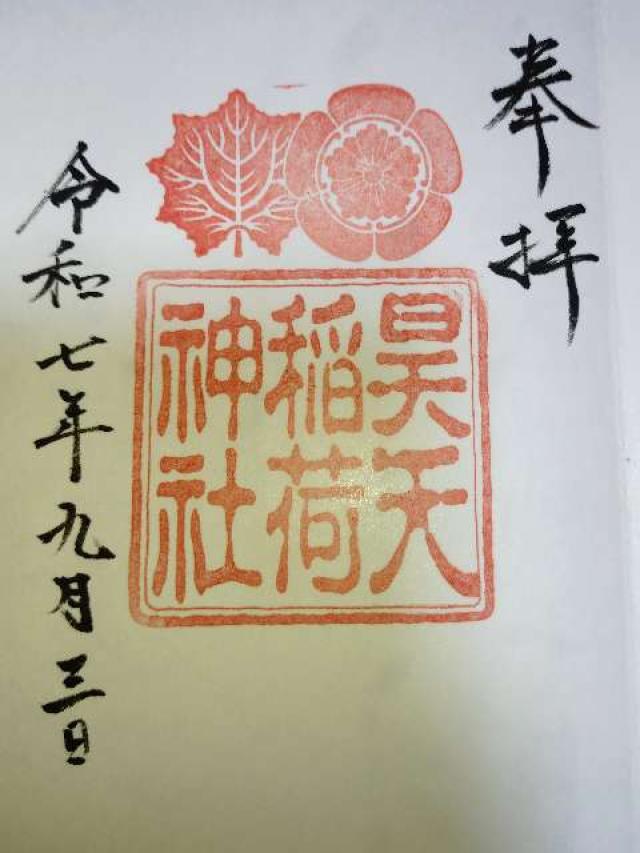 奉拝
昊天
稲荷
神社
令和七年九月三日